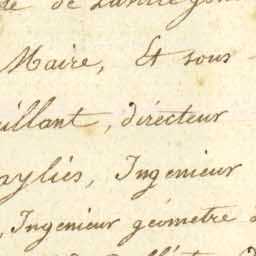 de de
Maire, Et sous
illant, directeur
ayliés, Ingenieur
, Ingenieur géometre